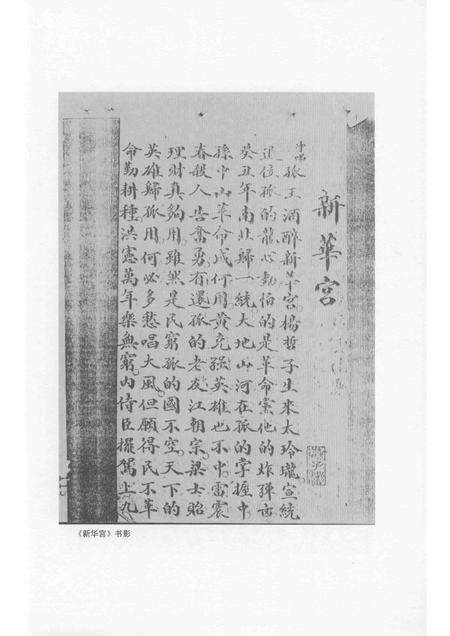 新華宮
孤王酒醉新華宮楊哲子生來太玲瓏宣統
退位孤的龍心動怕的是革命黨他的炸彈凶
癸丑年南北歸一統大地山河在孤的掌握中
孫中山革命成何用黄克强英雄也不中雷震
春般人告奮勇有還孤的老友江朝宗梁士詒
理財真夠用雖然是民窮孤的國不空天下的
英雄歸孤用何必多愁唱大風但願得民不革
命勤耕種洪憲萬年樂無窮内侍臣擺駕上九
《新华宫》书影